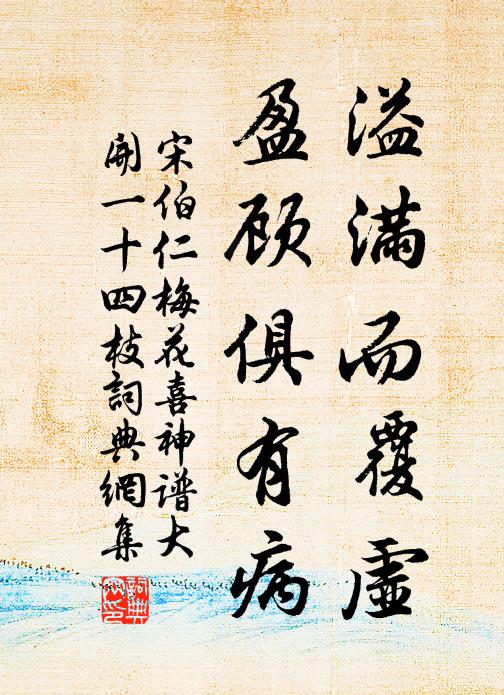 溢满而覆虚
盈顾俱有病
宋伯仁梅花喜神谱大
开一十四枝词典网集